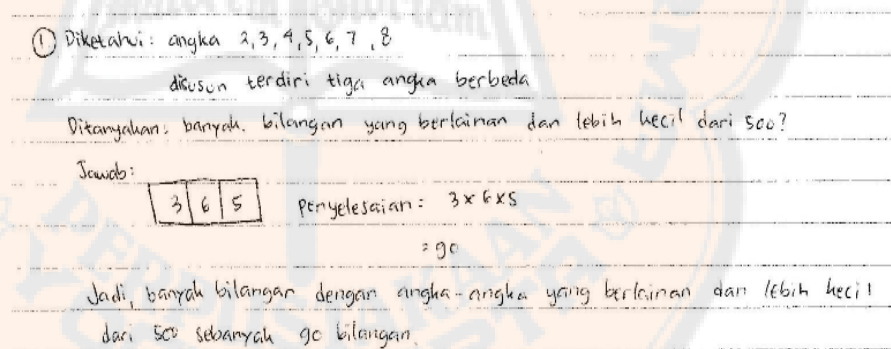 ① Diketahui: angka 2,3,4,5,6,7,8
disusun terdiri tiga angka berbeda
Ditanyakan: banyak bilangan yang berlainan dan lebih kecil dari 500?
Jawab:
3 6 5 Penyelesaian: 3 x 6 x 5
= 90
Jadi, banyak bilangan dengan angka-angka yang berlainan dan lebih kecil
dari 500 sebanyak 90 bilangan.